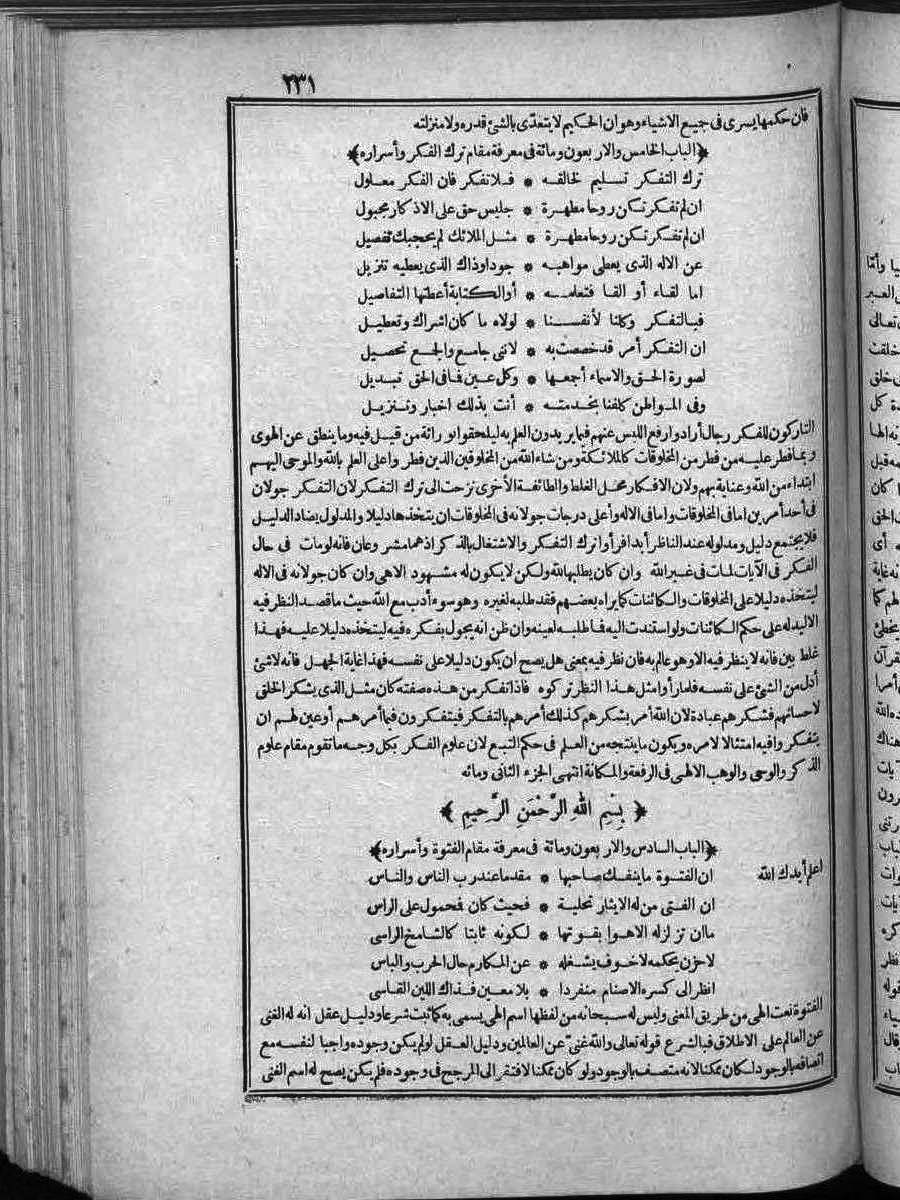 ٢٣١
فان حكمها يسرى فى جميع الاشياء وهو ان الحكيم لا يتعدّى بالشئ قدره ولا منزلته
﴿الباب الخامس والاربعون ومائة فى معرفة مقام ترك الفكر وأسراره﴾
ترك التفكر تسليم لخالقه * فلا تفكر فان الفكر معلول
ان لم تفكر تكن روحا مطهرة * جليس حق على الاذكار مجبول
ان لم تفكر تكن روحا مطهرة * مثل الملائك لم يحجبك تفصيل
عن الاله الذى يعطى مواهبه * جودا وذاك الذى يعطيه تنزيل
اما لقاء أو القا فتعلمه * أو الكتابة أعطتها التفاصيل
فبالتفكر وكلنا لأنفسنا * لولاه ما كان اشراك وتعطيل
ان التفكر أمر قد خصصت به * لاننى جامع والجمع تحصيل
لصورة الحق والاسماء أجمعها * وكل عين فما فى الحق تبديل
وفى المواطن كلفنا بخدمته * أنت بذلك اخبار وتنزيل
التاركون للفكر رجال أرادوا رفع اللبس عنهم فيما يريدون العلم به ليلحقوا بوراثة من قيل فيه وما ينطق عن الهوى
وبما فطر عليه من فطر من المخلوقات كالملائكة ومن شاء الله من المخلوقين الذين فطروا على العلم بالله والموحى اليهم
ابتداء من الله وعناية بهم ولان الافكار محل الغلط والطائفة الأخرى نزحت الى ترك التفكر لان التفكر جولان
فى أحد أمرين اما فى المخلوقات واما فى الاله وأعلى درجات جولانه فى المخلوقات ان يتخذها دليلا والمدلول يضاد الدليل
فلا يجتمع دليل ومدلوله عند الناظر أبدا فرأوا ترك التفكر والاشتغال بالذكر اذ هما مشروعان فانه لو مات فى حال
الفكر فى الآيات لمات فى غير الله وان كان يطلبها لله ولكن لا يكون له مشهود الا هى وان كان جولانه فى الاله
ليتخذه دليلا على المخلوقات والكائنات كما يراه بعضهم فقد طلبه لغيره وهو سوء أدب مع الله حيث ما قصد النظر فيه
الا ليدله على حكم الكائنات ولو استندت اليه فما طلبه لعينه وان ظن انه يجول بفكره فيه ليتخذه دليلا عليه فهذا
غلط بين فانه لا ينظر فيه الا وهو عالم به فان نظر فيه بمعنى هل يصح ان يكون دليلا على نفسه فهذا غاية الجهل فانه لا شئ
أدل من الشئ على نفسه فلما رأوا مثل هذا النظر تركوه فاذا تفكر من هذه صفته كان مثل الذى يشكر الخلق
لاحسانهم فشكرهم عبادة لان الله أمر بشكرهم كذلك أمرهم بالتفكر فيتفكرون فيما أمرهم أو عين لهم ان
يتفكروا فيه امتثالا لامره ويكون ما ينتجه من العلم فى حكم التبع لان علوم الفكر بكل وجه ما تقوم مقام علوم
الذكر والوحى والوهب الالهى فى الرفعة والمكانة انتهى الجزء الثانى ومائه
﴿ بِسْمِ اللهِ الرَّحْمٰنِ الرَّحِيمِ ﴾
﴿الباب السادس والاربعون ومائة فى معرفة مقام الفتوة وأسراره﴾
اعلم أيدك الله
ان الفتوة ما ينفك صاحبها * مقدما عند رب الناس والناس
ان الفتى من له الايثار تحلية * فحيث كان فمحمول على الراس
ما ان تزلزله الاهوا بقوتها * لكونه ثابتا كالشامخ الراسى
لا حزن يحكمه لا خوف يشغله * عن المكارم حال الحرب والباس
انظر الى كسره الاصنام منفردا * بلا معين فذاك اللين القاسى
الفتوة نعت الهى من طريق المعنى وليس له سبحانه من لفظها اسم الهى يسمى به كما ثبت شرعا ودليل عقل انه له الغنى
عن العالم على الاطلاق فبالشرع قوله تعالى والله غنىّ عن العالمين ودليل العقل لو لم يكن وجوده واجبا لنفسه مع
اتصافه بالوجود لكان ممكنا لانه متصف بالوجود ولو كان ممكنا لافتقر الى المرجح فى وجوده فلم يكن يصح له اسم الغنى